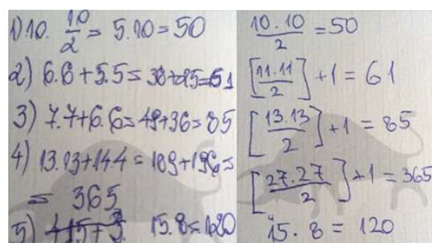 1) 10 · 10/2 = 5.10 = 50
2) 6.6 + 5.5 = 36+25=61
3) 7.7+6.6=49+36=85
4) 13.13+14.4=169+196=
= 365
5) 15.8=120
10.10/2 = 50
[11.11/2] +1 = 61
[13.13/2] +1 = 85
[27.27/2] +1 = 365
15. 8 = 120